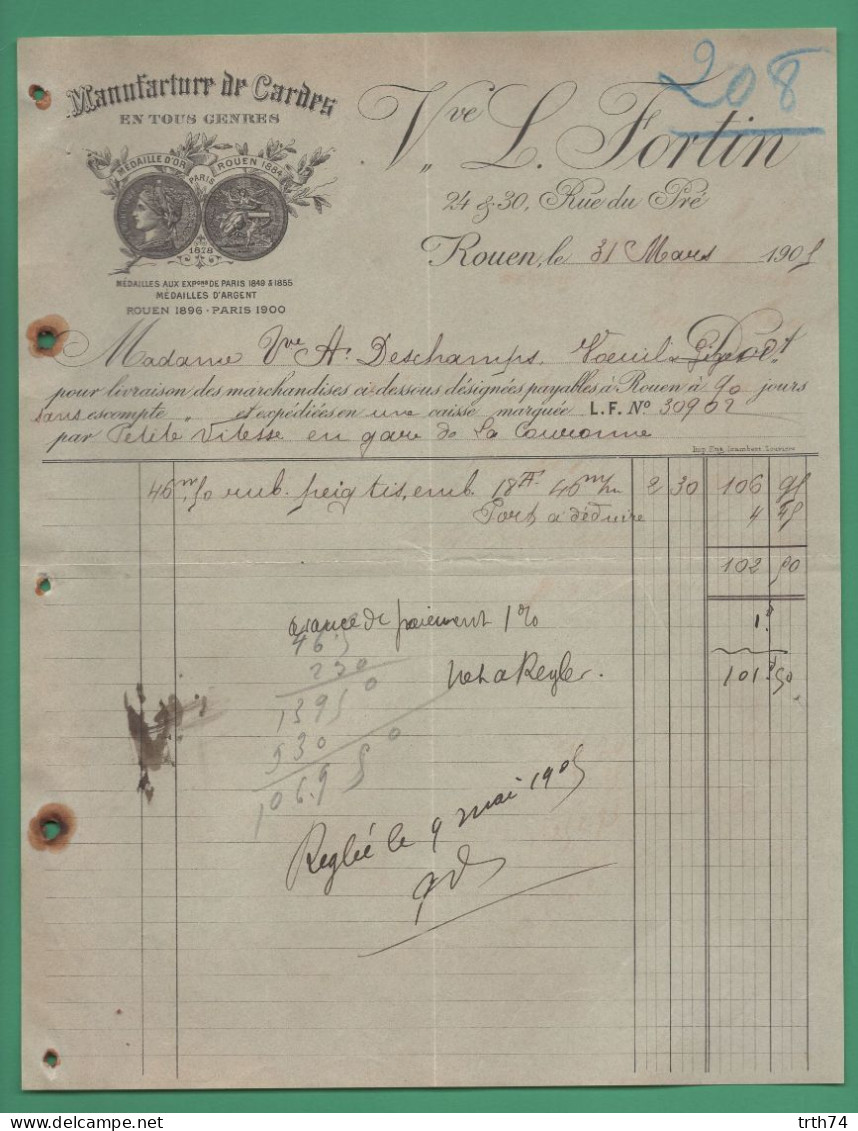 208
Manufacture de Cardes
EN TOUS GENRES
MÉDAILLE D'OR
PARIS
ROUEN 1884
1878
MÉDAILLES AUX EXPons DE PARIS 1849 & 1855
MÉDAILLES D'ARGENT
ROUEN 1896 - PARIS 1900
Vve L. Fortin
24 & 30, Rue du Pré
Rouen, le 31 Mars 1905
Madame Vve A. Deschamps, Voeuil Doit
pour livraison des marchandises ci-dessous désignées payables à Rouen à 90 jours
sans escompte " et expédiées en une caisse marquée L.F. No 30902
par Petite Vitesse en gare de La Couronne
Imp. Eug. Izambert Louviers
46m,50 rub. peig tis, emb. 18 46m 2 30 106 95
Port à déduire 4 45
102 50
avance de paiement 1% 1."
465
230
Net à Regler. 101." 50
13950
930
106.950
Reglée le 9 mai 1905